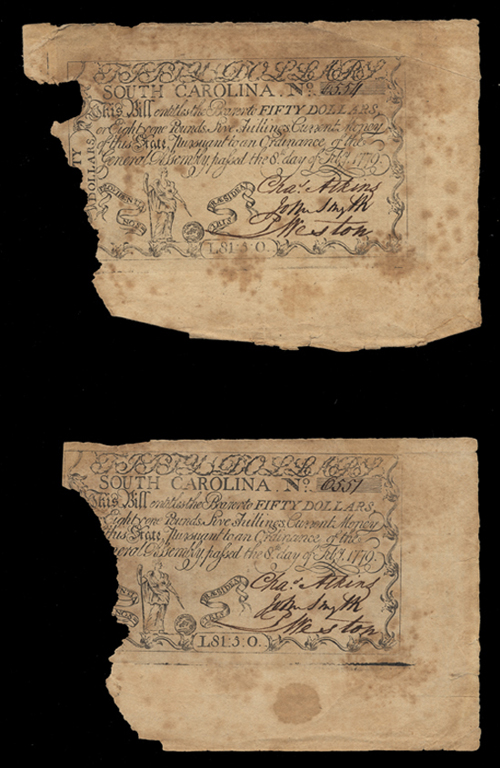 FIFTY DOLLARS
SOUTH CAROLINA. No. 6551
This Bill entitles the Bearer to FIFTY DOLLARS,
or Eighty one Pounds, Five Shillings, Current Money
of this State, Pursuant to an Ordinance of the
General Assembly, passed the 8th. day of Feby. 1779.
TY
DOLLARS
PROVIDENTIA
NOSTRIS
PRÆSIDENT
Chas. Atkins
John Smyth
P Weston
L81.5.0.
FIFTY DOLLARS
SOUTH CAROLINA. No. 6551
This Bill entitles the Bearer to FIFTY DOLLARS,
Eighty one Pounds, Five Shillings, Current Money
this State, Pursuant to an Ordinance of the
eneral Assembly, passed the 8th. day of Feby. 1779.
PRÆSIDENT
Chas. Atkins
John Smyth
P Weston
L81.5.0.